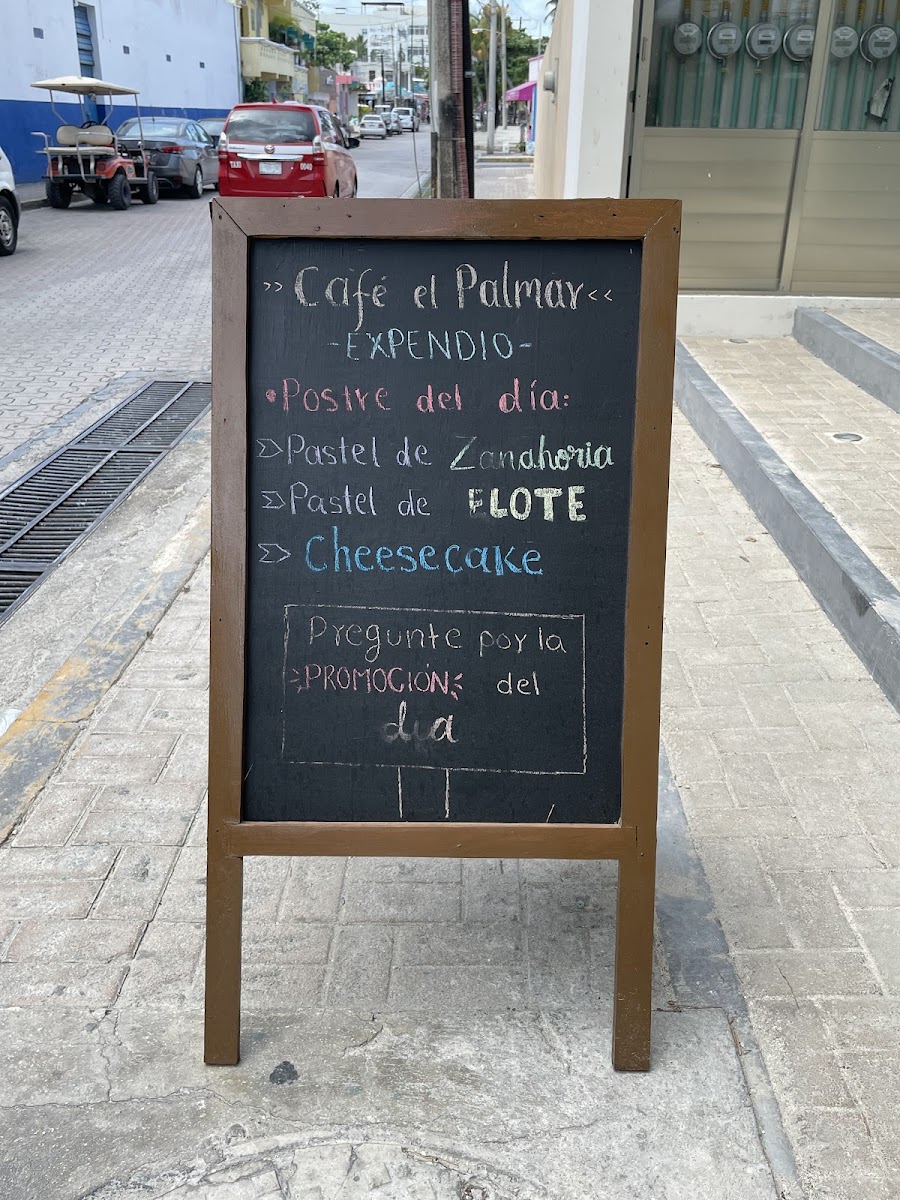 TAXI 0040
>> Café el Palmar <<
-EXPENDIO-
•Postre del día:
Pastel de Zanahoria
Pastel de ELOTE
Cheesecake
Pregunte por la
PROMOCIÓN del
día